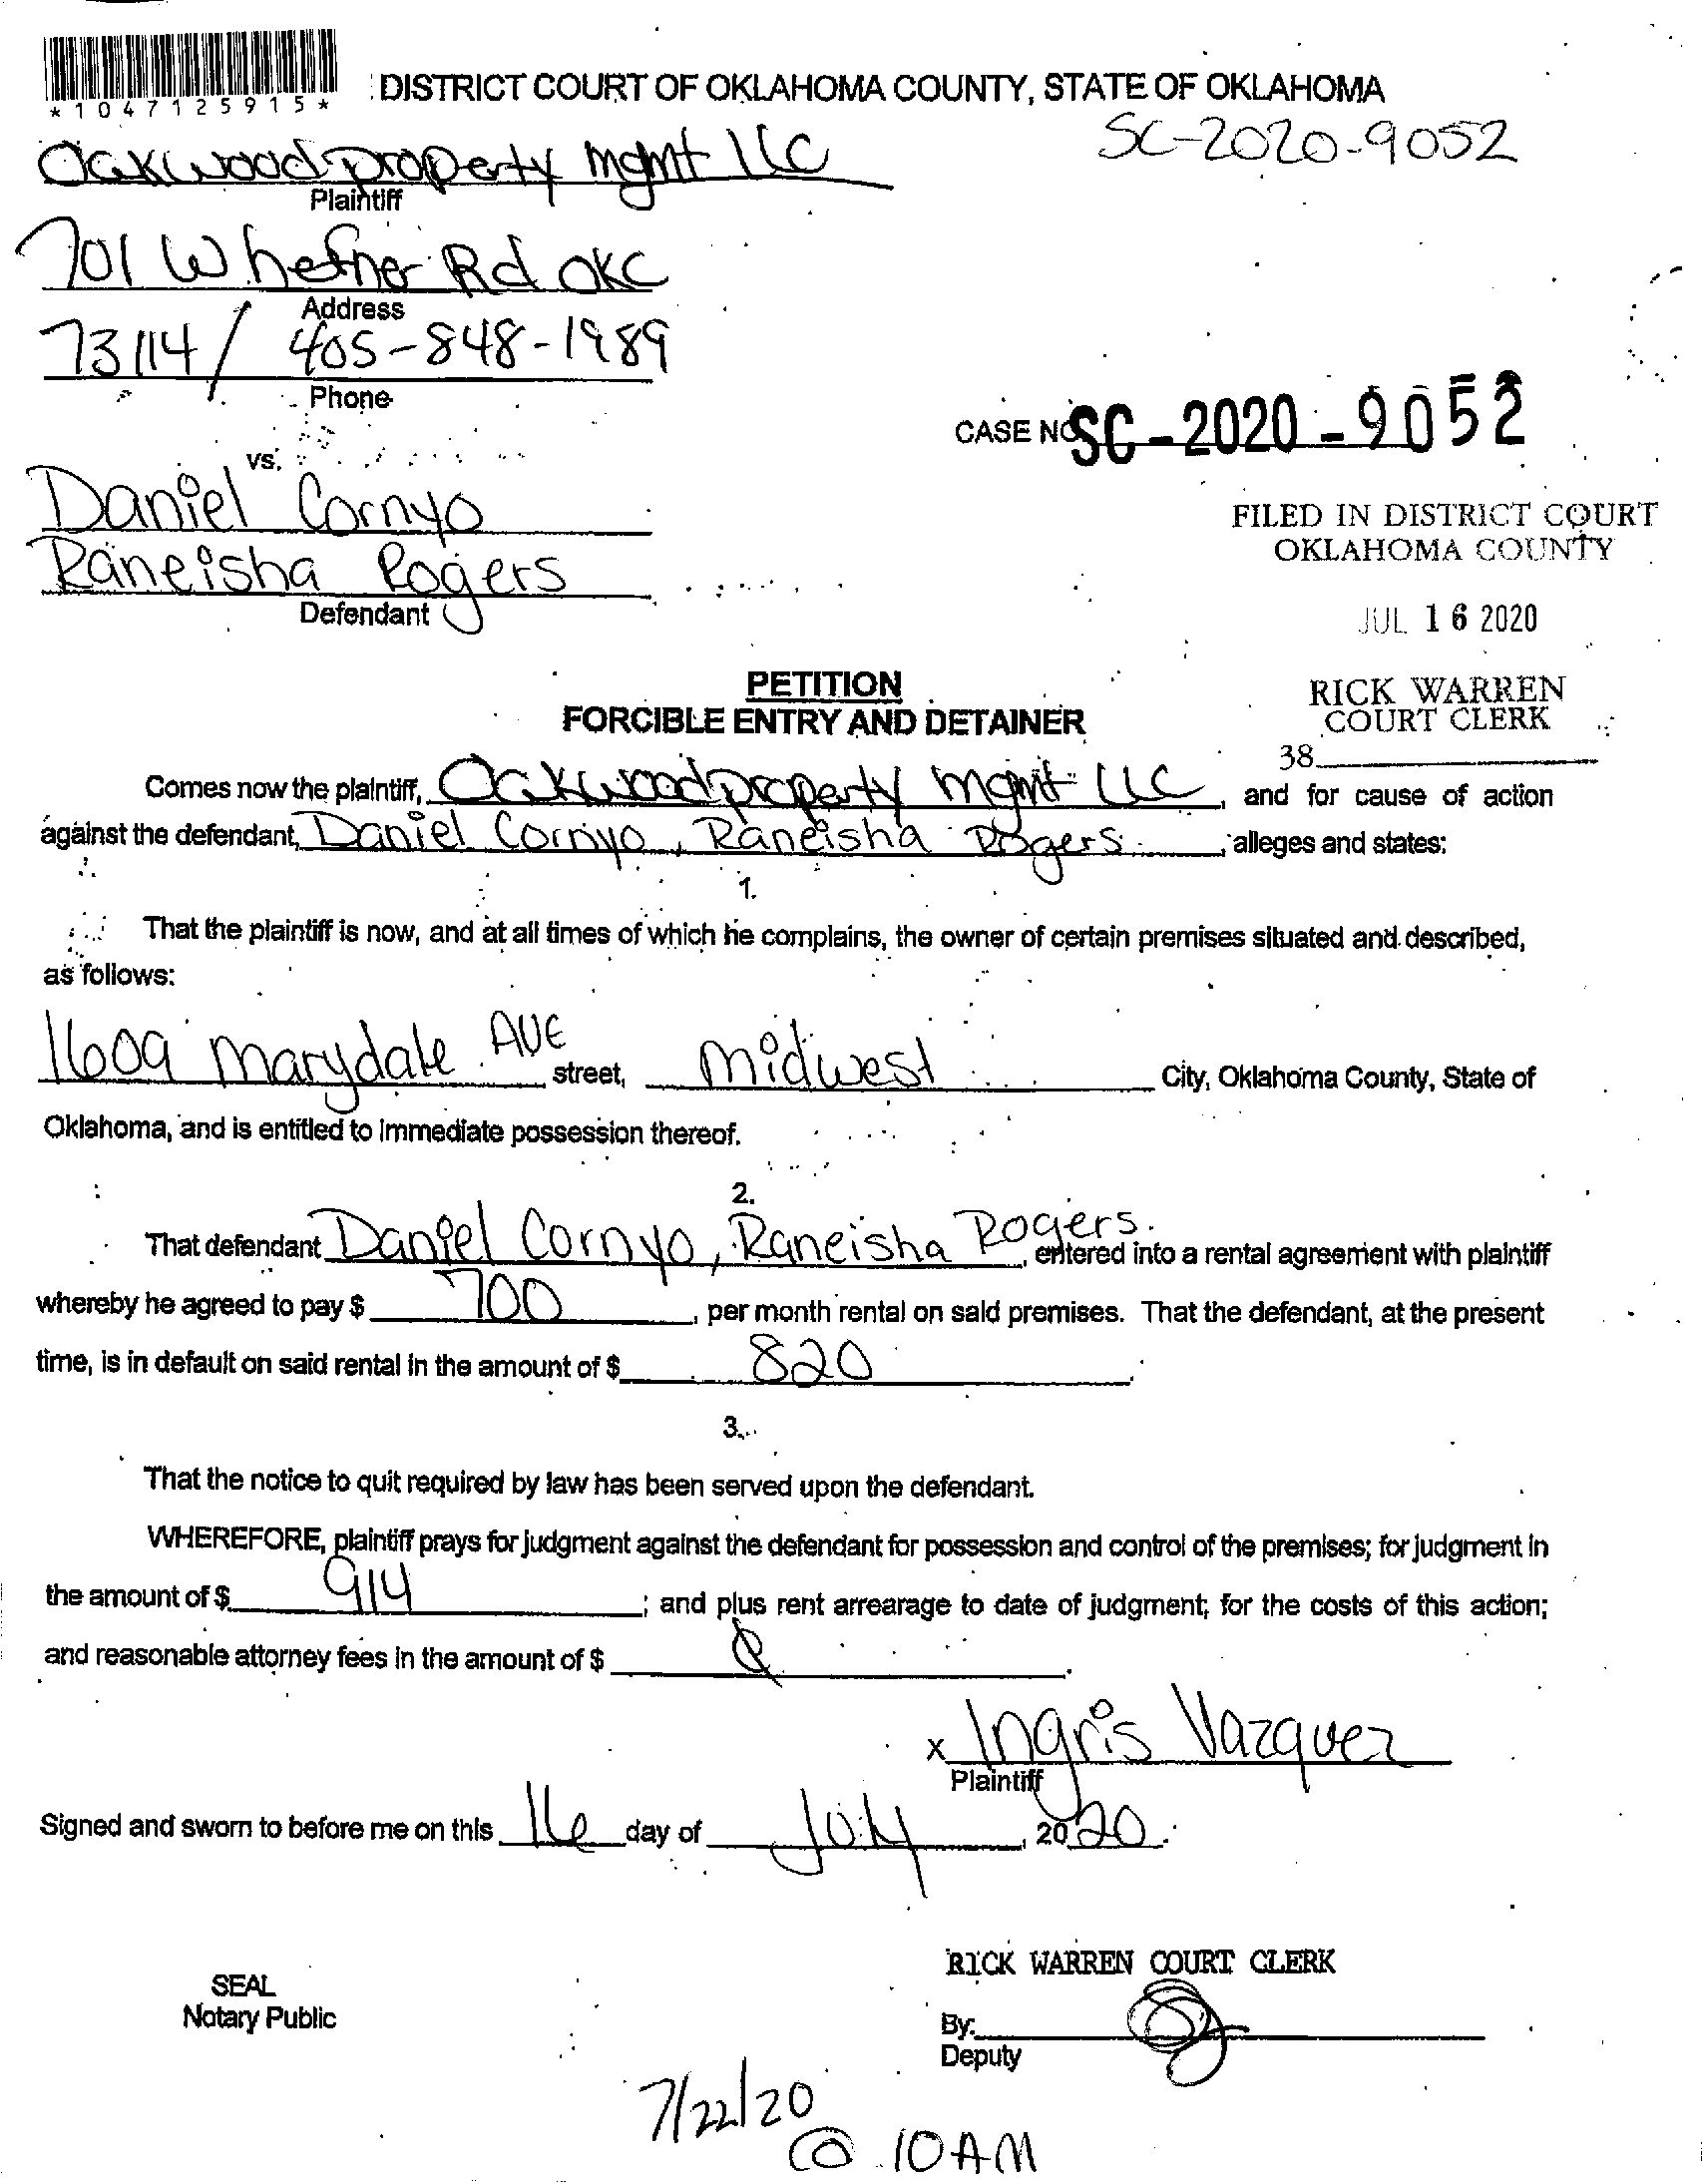 *1047125915*
DISTRICT COURT OF OKLAHOMA COUNTY, STATE OF OKLAHOMA
SC-2020-9052
Oakwood property mgmt llc
Plaintiff
701 W hefner Rd OKC
Address
73114 / 405-848-1989
Phone
CASE NO SC-2020-9052
vs.
Daniel Cornyo
Raneisha Rogers
Defendant
FILED IN DISTRICT COURT
OKLAHOMA COUNTY
JUL 16 2020
RICK WARREN
COURT CLERK
38
PETITION
FORCIBLE ENTRY AND DETAINER
Comes now the plaintiff, Oakwood property mgmt LLC, and for cause of action
against the defendant, Daniel Cornyo, Raneisha Rogers, alleges and states:
1.
That the plaintiff is now, and at all times of which he complains, the owner of certain premises situated and described,
as follows:
1609 Marydale AVE street, midwest City, Oklahoma County, State of
Oklahoma, and is entitled to immediate possession thereof.
2.
That defendant Daniel Cornyo, Raneisha Rogers, entered into a rental agreement with plaintiff
whereby he agreed to pay $ 700, per month rental on said premises. That the defendant, at the present
time, is in default on said rental in the amount of $ 820.
3.
That the notice to quit required by law has been served upon the defendant.
WHEREFORE, plaintiff prays for judgment against the defendant for possession and control of the premises; for judgment in
the amount of $ 914; and plus rent arrearage to date of judgment; for the costs of this action;
and reasonable attorney fees in the amount of $
x Ingris Vazquez
Plaintiff
Signed and sworn to before me on this 16 day of July, 2020.
RICK WARREN COURT CLERK
SEAL
Notary Public
By:
Deputy
7/22/20
@ 10 AM